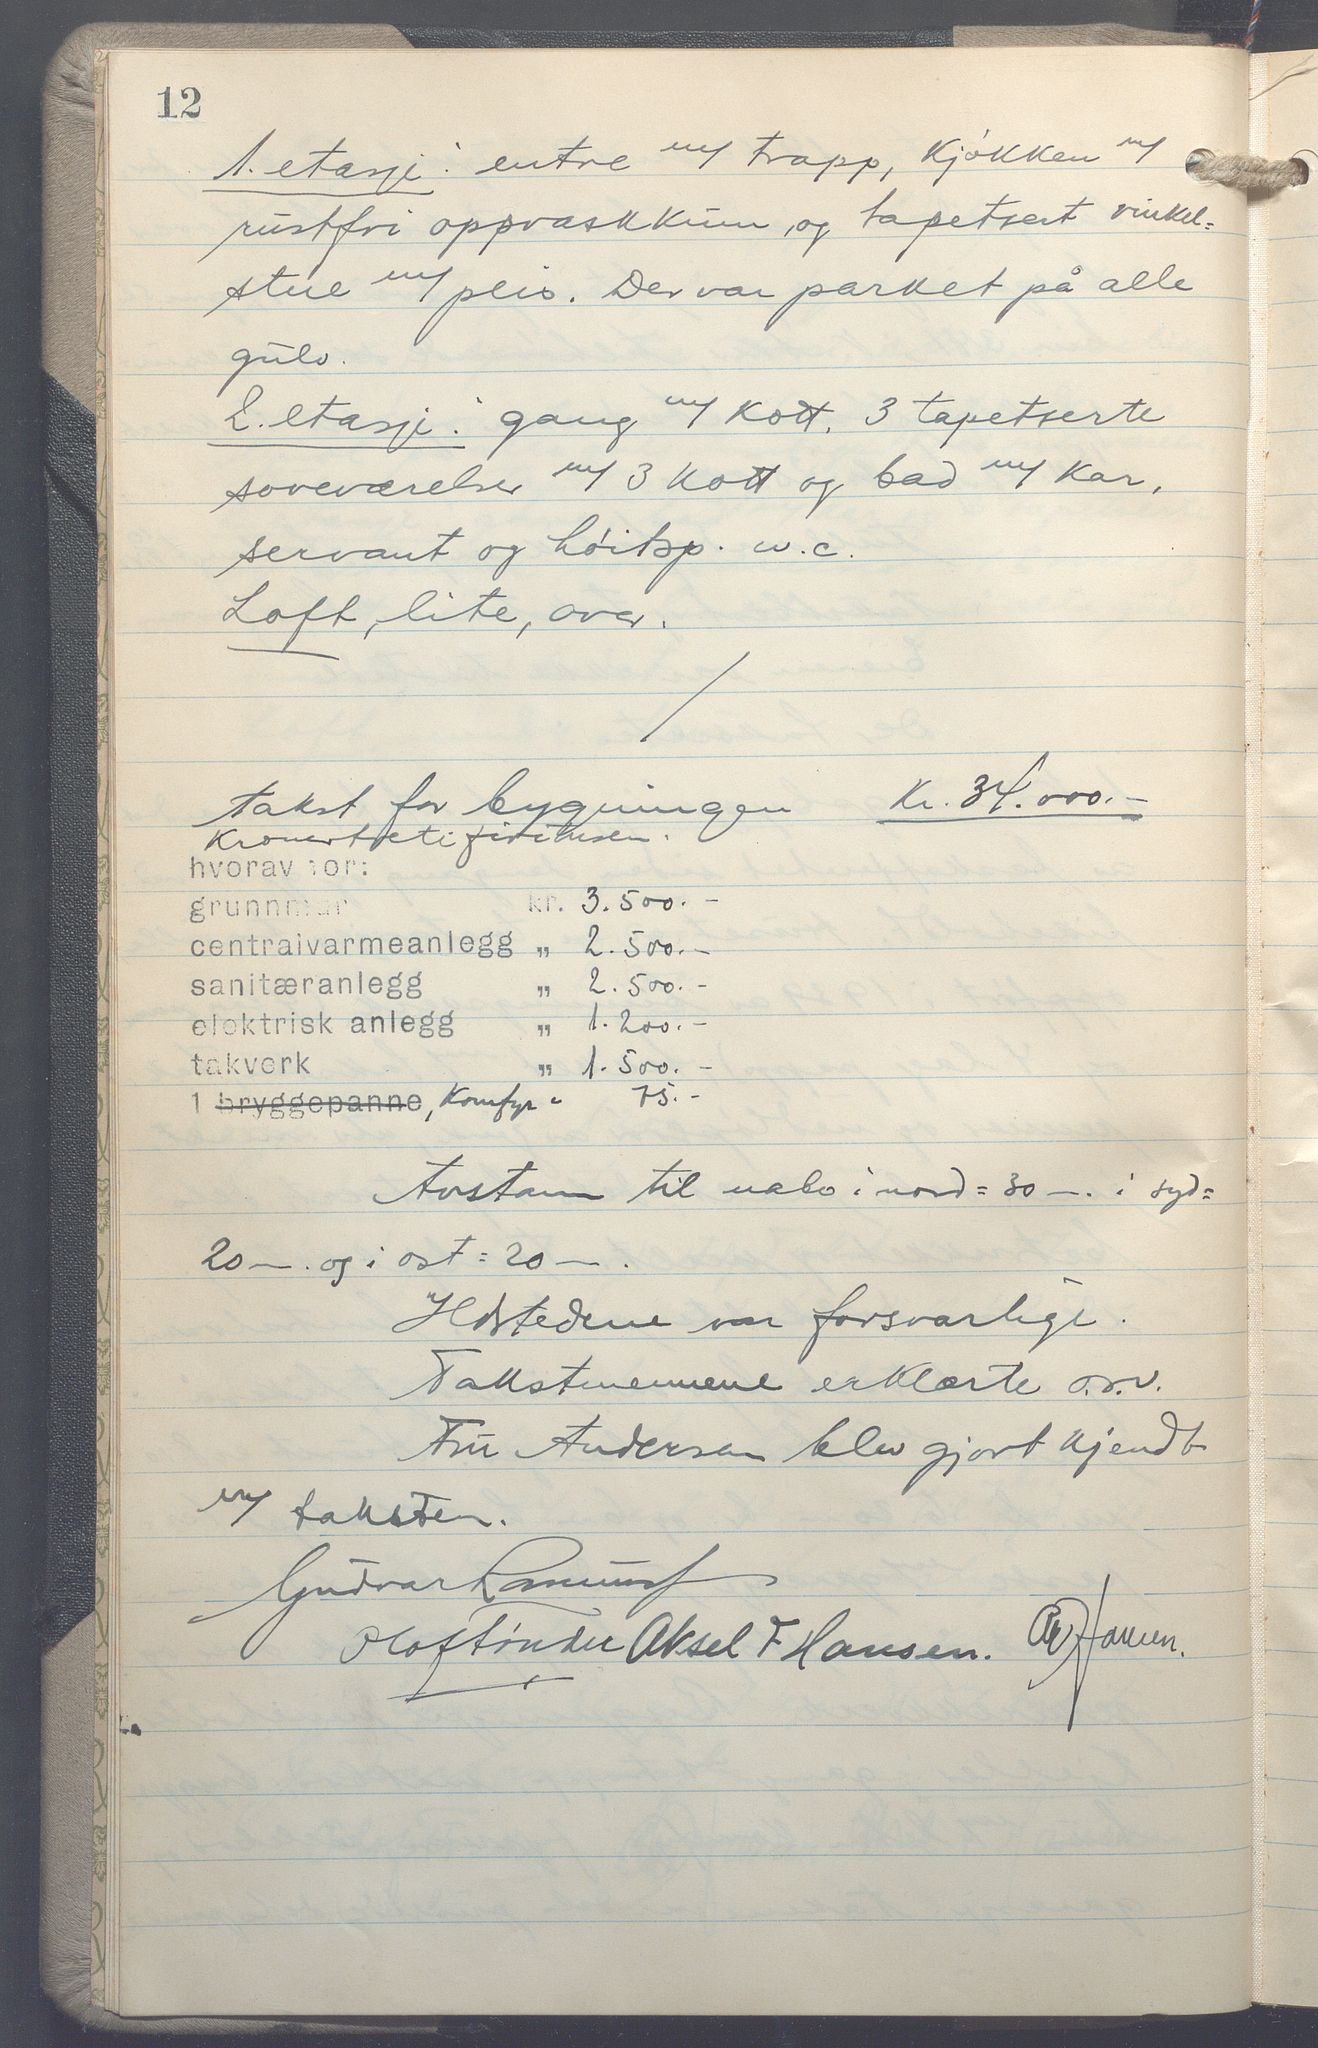 12
1. etasje: entre m/ trapp, kjøkken m/
rustfri oppvaskkum, og tapetsert vinkel=
stue m/ peis. Der var parket på alle
gulv.
2. etasje: gang m/ kott. 3 tapetserte
soveværelser m/ 3 kott og bad m/ kar,
servant og høitsp. w.c.
Loft, lite, over.
/
Takst for bygningen Kr. 34.000.-
Kronertrettifiretusen.
hvorav for:
grunnmur kr. 3.500.-
centralvarmeanlegg „ 2.500.-
sanitæranlegg „ 2.500.-
elektrisk anlegg „ 1.200.-
takverk „ 1.500.-
1 bryggepanne, Komfyr " 75.-
Avstann til nabo i nord = 30 m. i syd =
20 m. og i ost = 20 m.
Ildstedene var forsvarlige.
Takstmennene erklærte o.s.v.
Fru Andersen blev gjort kjendt
m/ taksten.
Gudvar
Olaf Tønder Aksel F Hansen. Hansen.